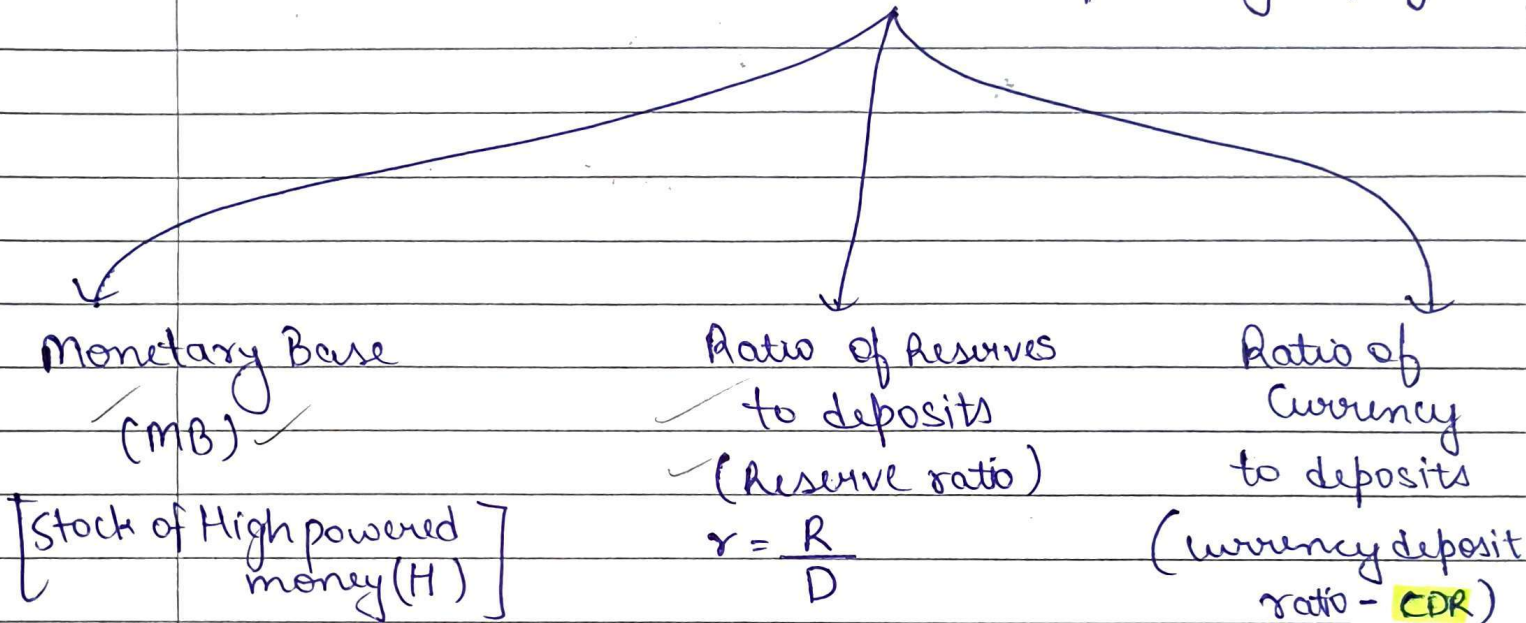 Monetary Base
(MB)
[Stock of High powered
money (H)]
Ratio of Reserves
to deposits
(Reserve ratio)
r = R
D
Ratio of
Currency
to deposits
(Currency deposit
ratio - CDR)